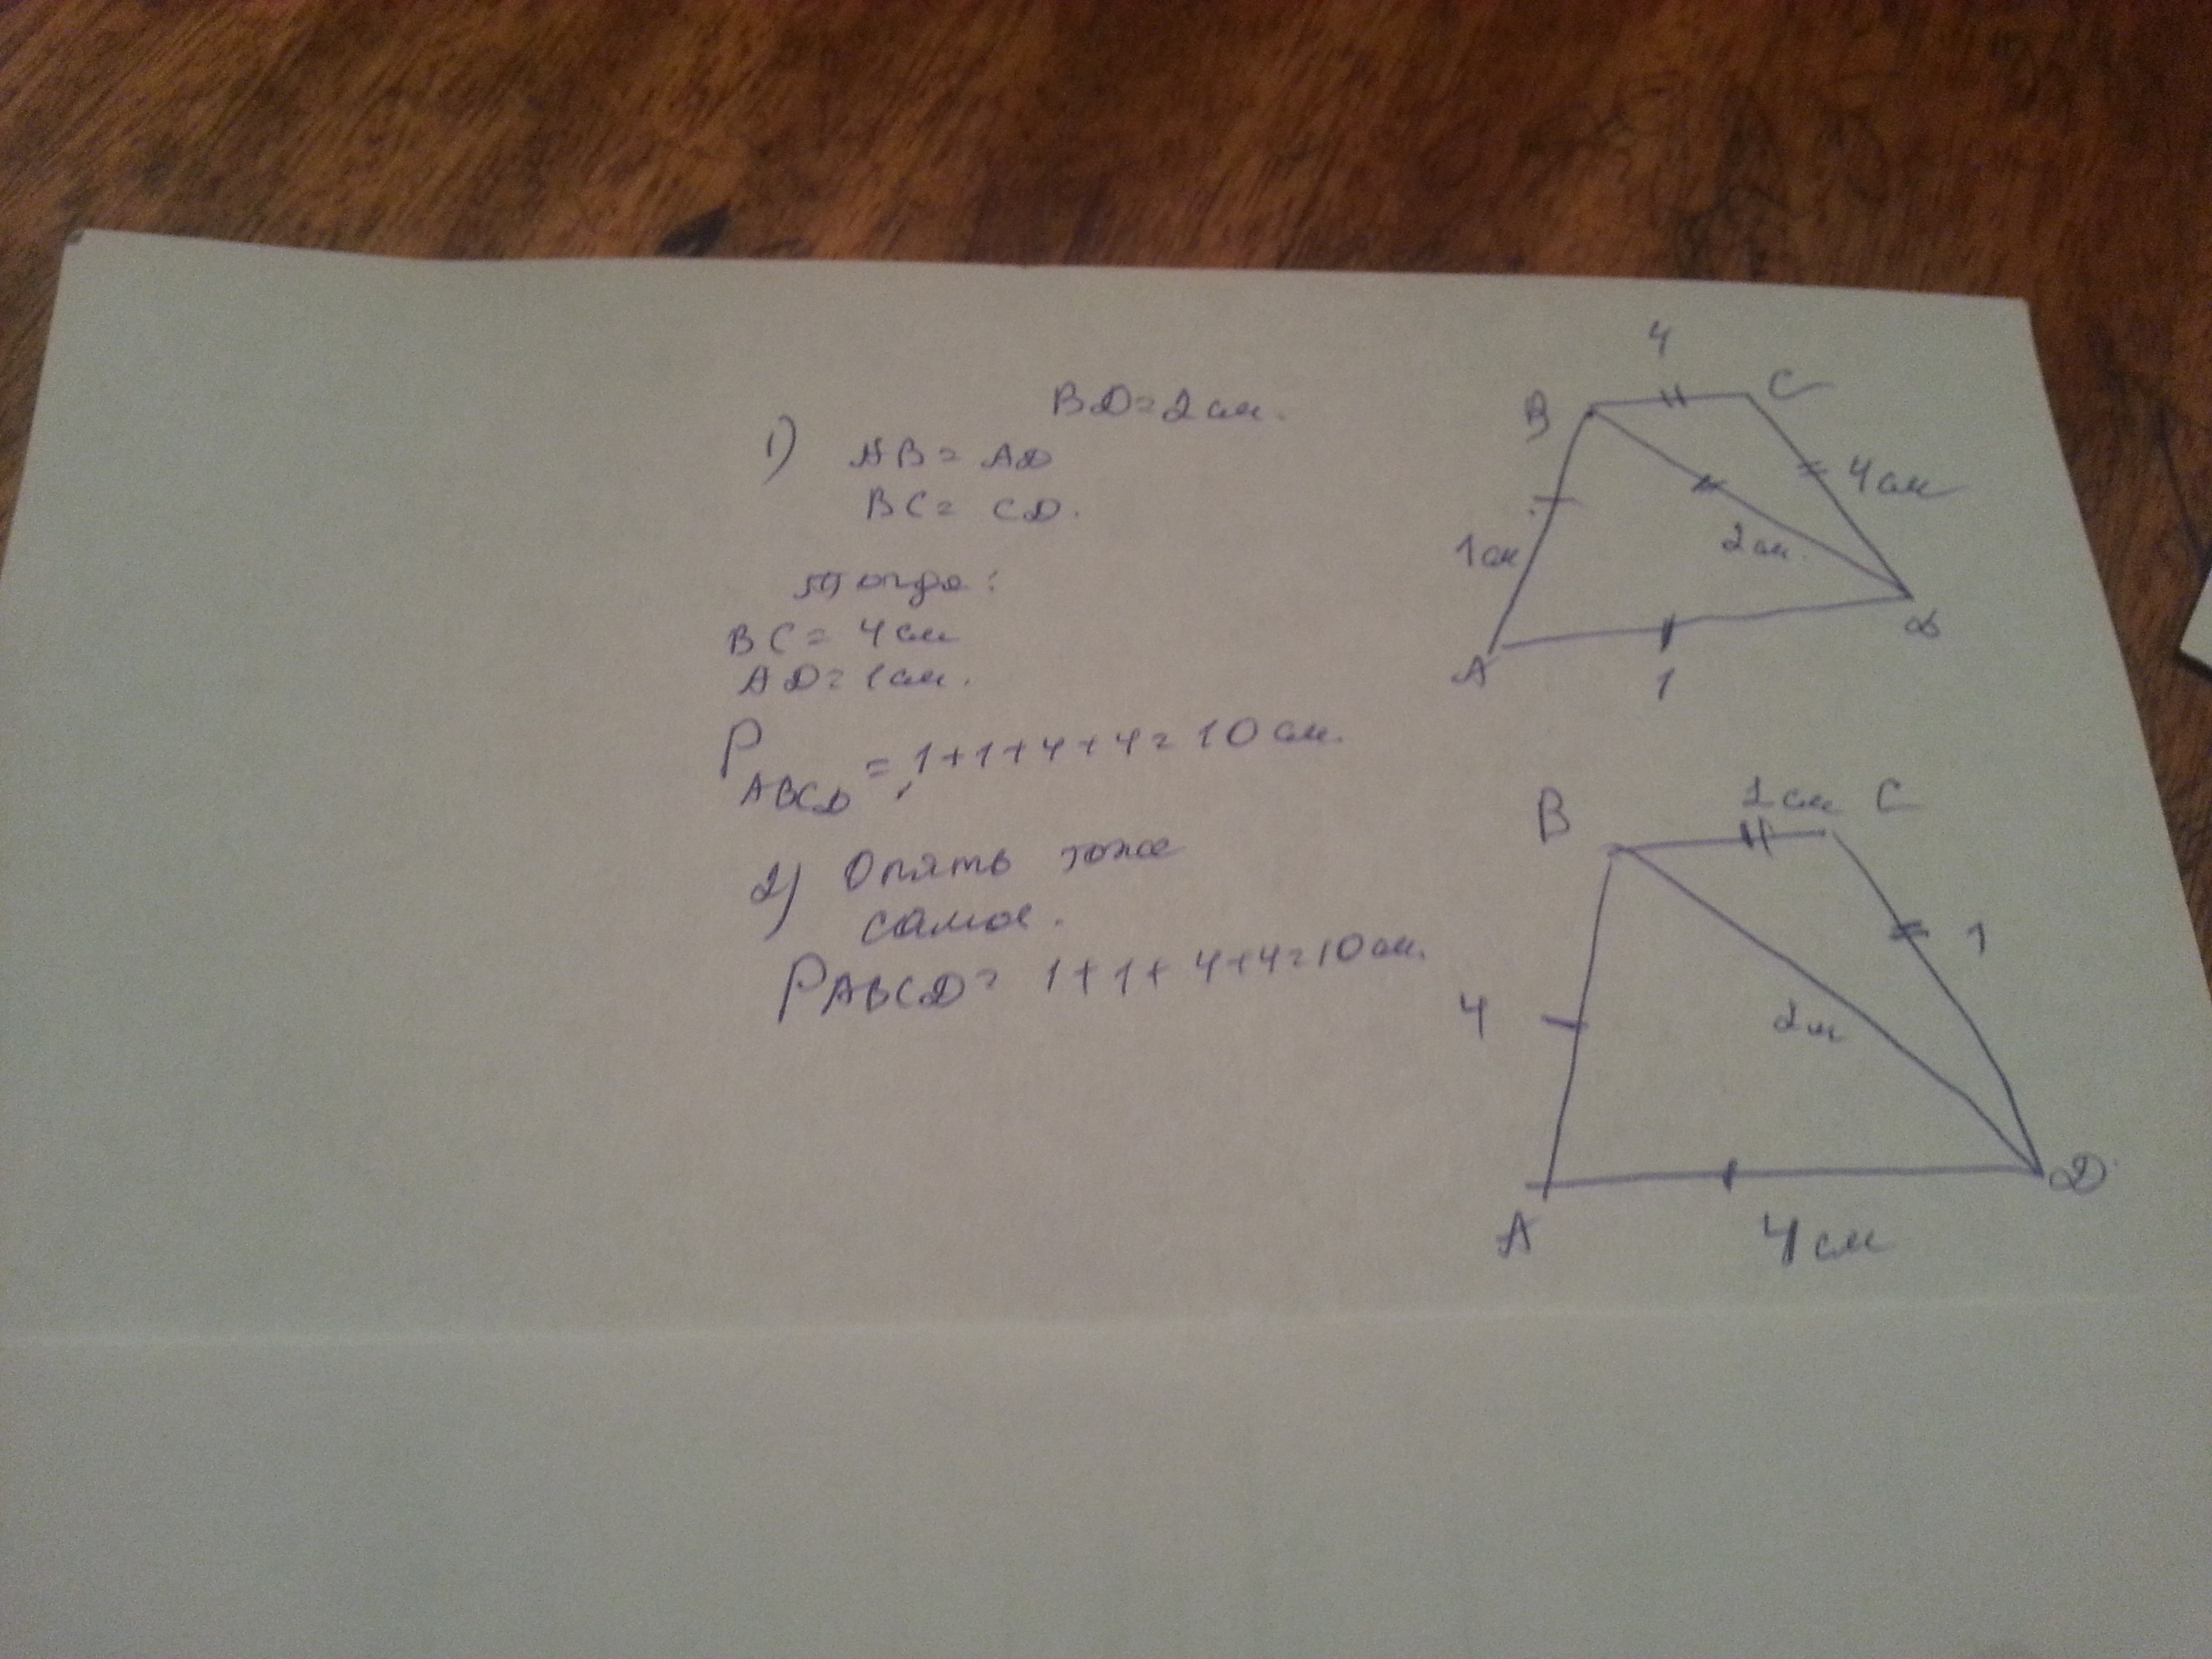 BD=2см.
1) AB= AD
BC= CD.
Тогда:
BC= 4см
AD=1см.
P ABCD = 1+1+4+4=10см.
2) Опять тоже
самое.
PABCD= 1+1+4+4=10см.
4
B
C
4см
1см
2см.
A
1
D
B
1см C
1
4
2см
A
D
4см